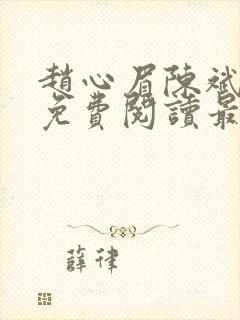 趙心眉陳斌
免費閱讀最
薛律